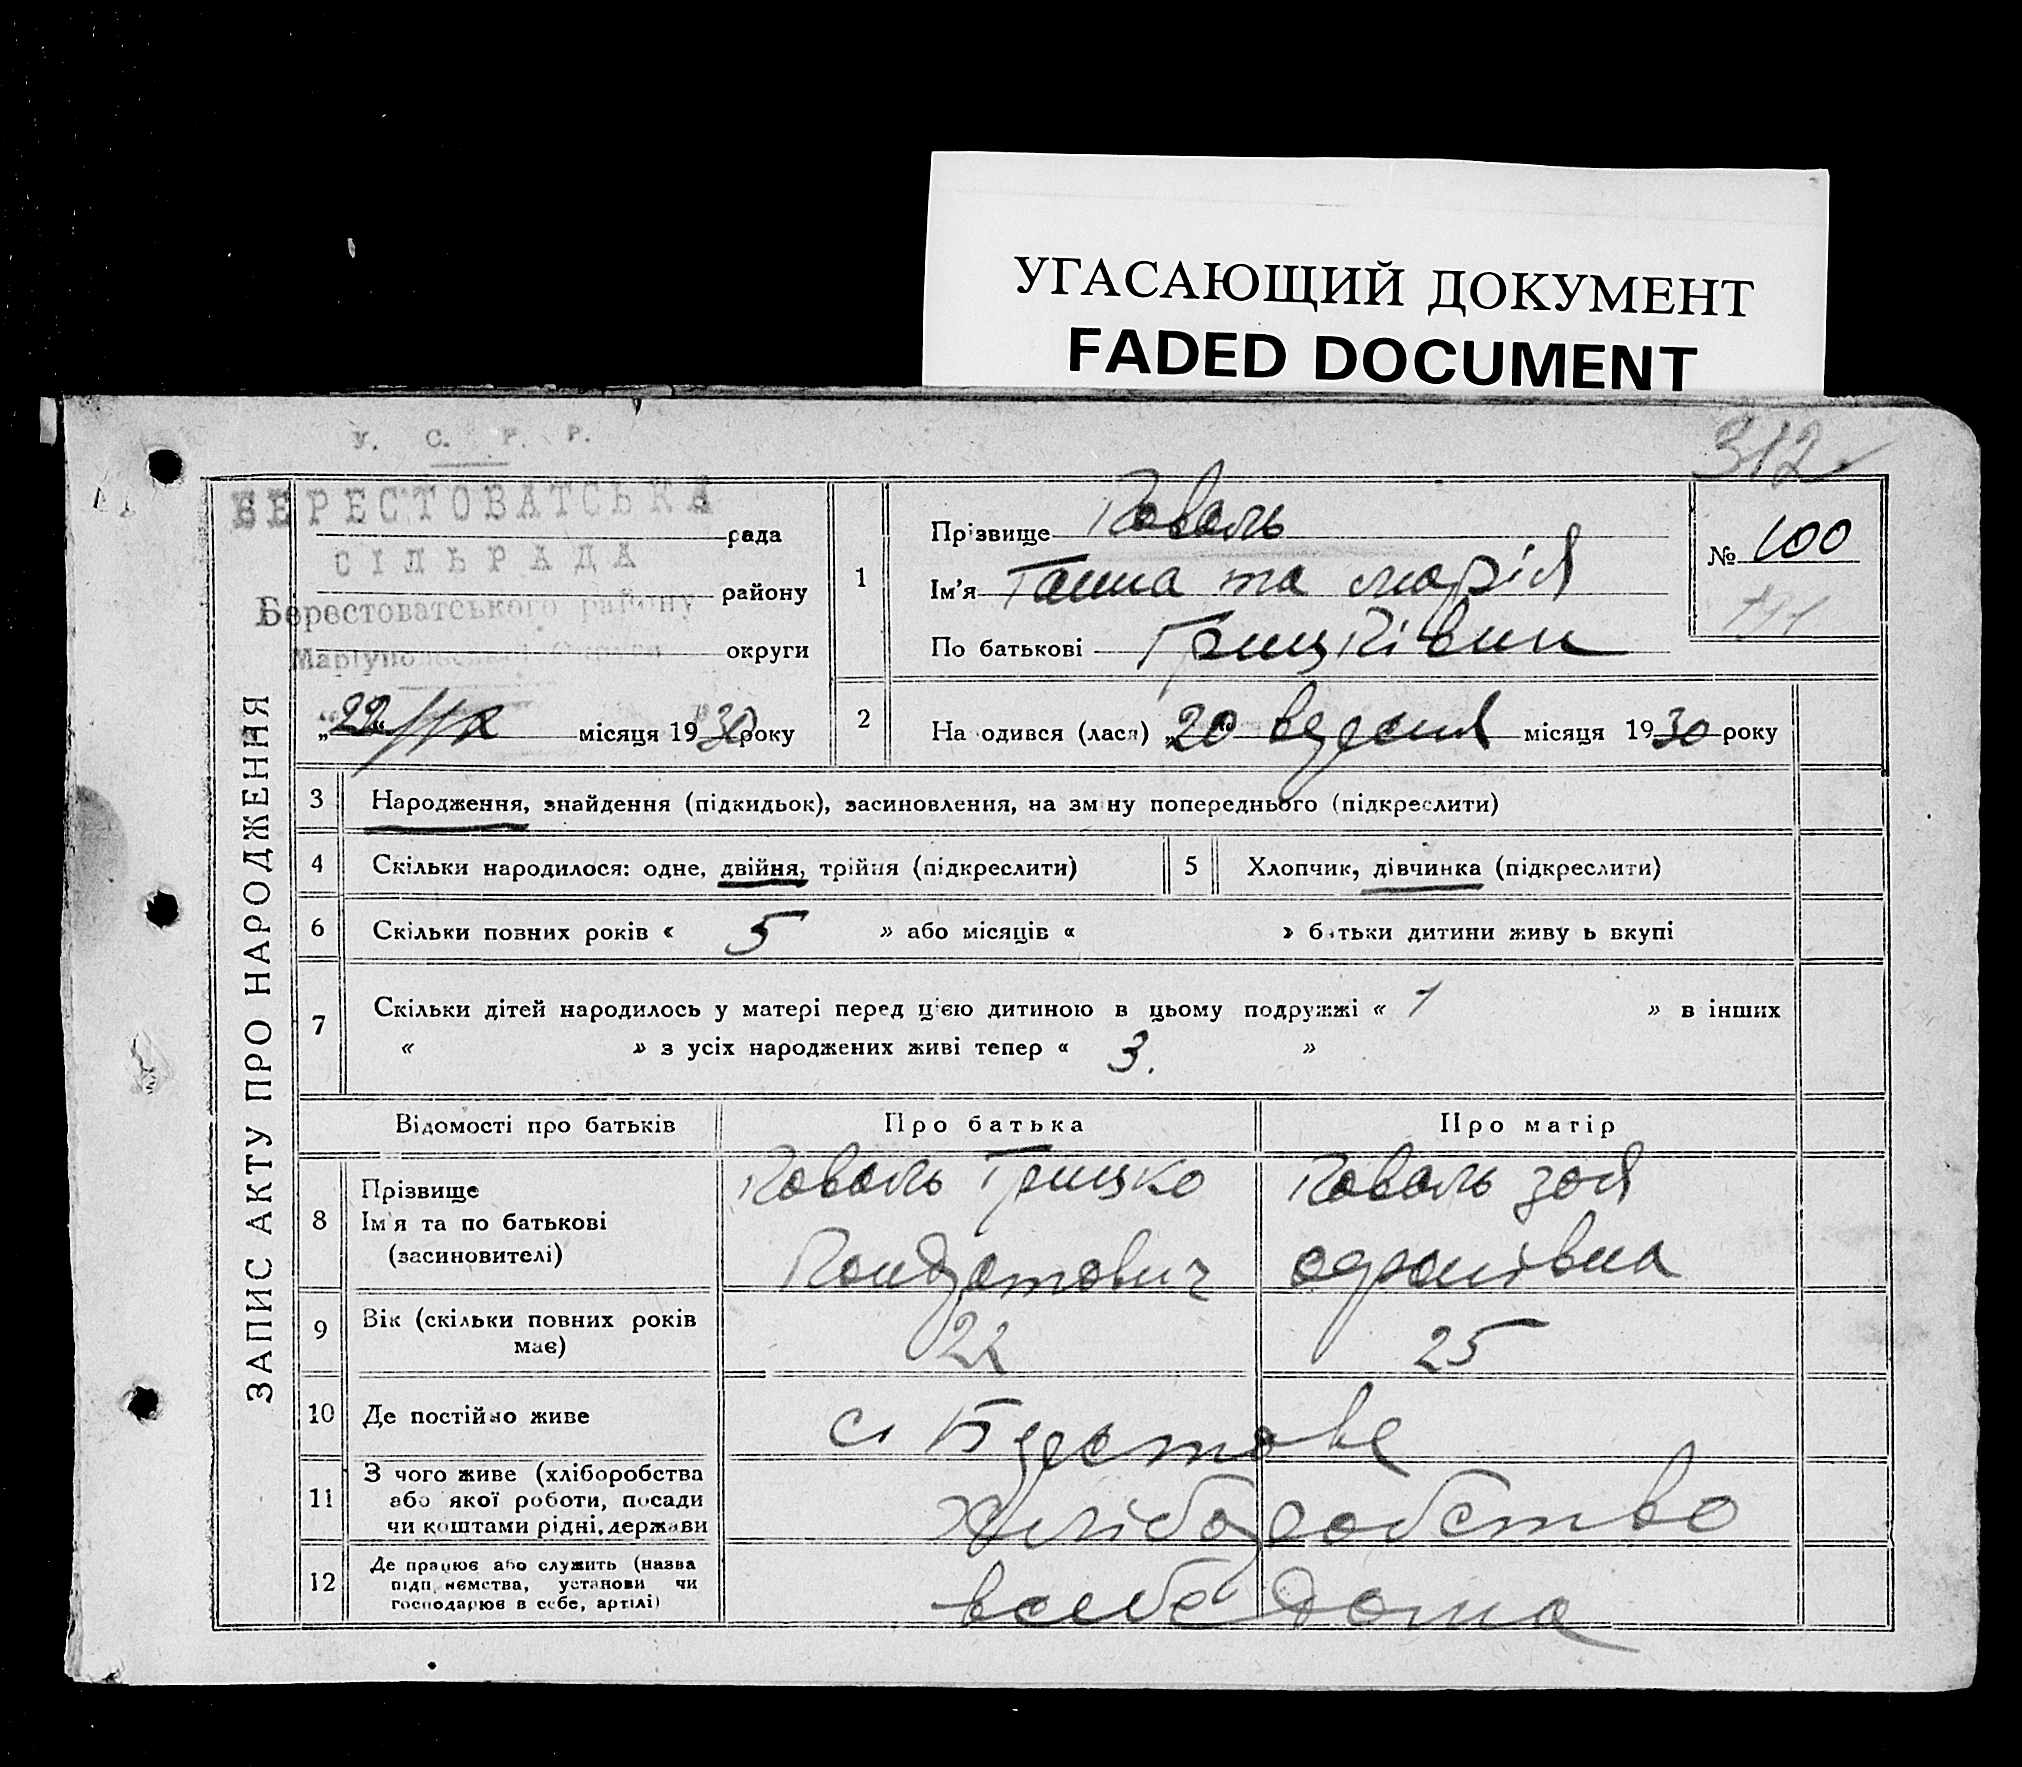 УГАСАЮЩИЙ ДОКУМЕНТ
FADED DOCUMENT
312
У. С. Р. Р.
БЕРЕСТОВАТСЬКА рада
СІЛЬРАДА
Берестоватського району району
Маріупольської Округи округи
„22“ ІХ місяця 1930 року
1 Прізвище Коваль
Ім'я Ганна та Марія
По батькові Грицківни
№ 100
2 Народився (лася) „20“ вересня місяця 1930 року
ЗАПИС АКТУ ПРО НАРОДЖЕННЯ
3 Народження, знайдення (підкидьок), засиновлення, на зміну попереднього (підкреслити)
4 Скільки народилося: одне, двійня, трійня (підкреслити) 5 Хлопчик, дівчинка (підкреслити)
6 Скільки повних років « 5 » або місяців « » батьки дитини живуть вкупі
7 Скільки дітей народилось у матері перед цією дитиною в цьому подружжі « 1 » в інших
« » з усіх народжених живі тепер « 3. »
Відомості про батьків Про батька Про матір
8 Прізвище Ім'я та по батькові (засиновителі)
Коваль Грицко Коваль Зоя
Кондратович
9 Вік (скільки повних років має) 22 25
10 Де постійно живе с. Берестове
11 З чого живе (хліборобства або якої роботи, посади чи коштами рідні, держави Хліборобство
12 Де працює або служить (назва підприємства, установи чи господарює в себе, артілі) в себе дома